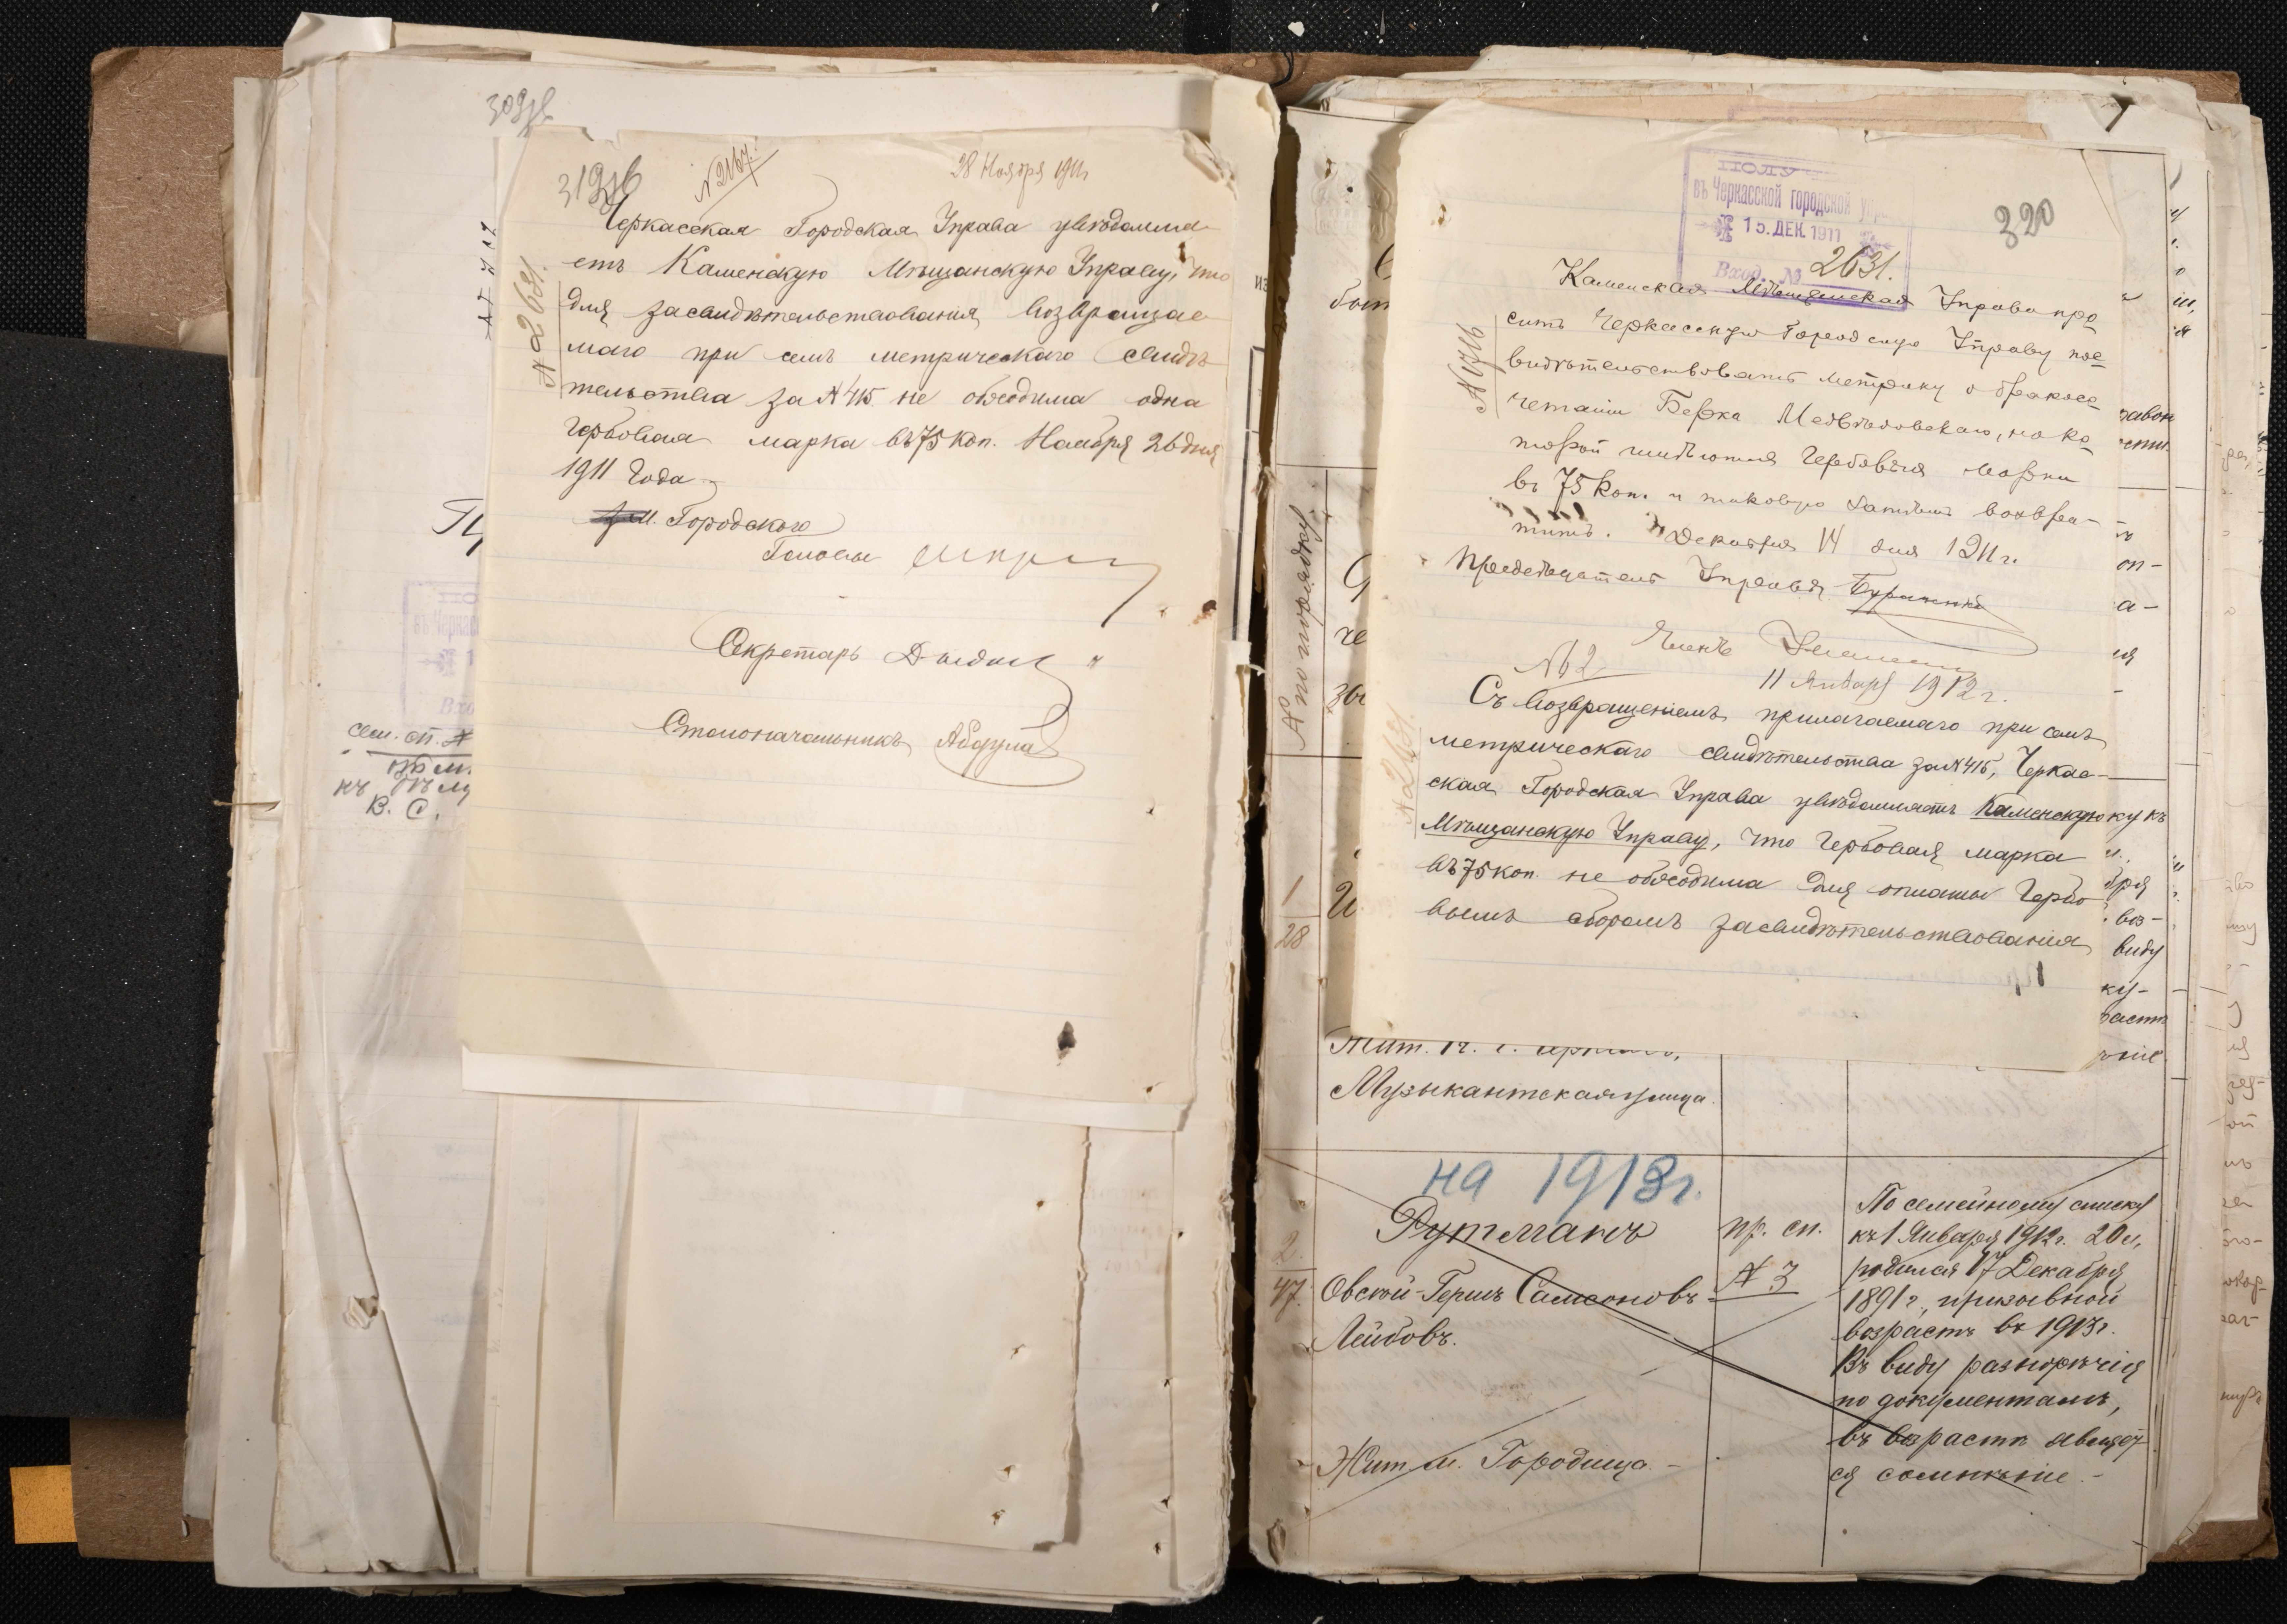 309об
319об
№2167.
28 Ноября 1911г
Черкасская Городская Управа увѣдомля-
етъ Каменскую Мѣщанскую Управу, что
для засвидѣтельствованія возвращае-
маго при семъ метрическаго свидѣ-
тельства за №415 не обходима одна
гербовая марка въ 75 коп. Ноября 26 дня
1911 года
Городского
Головы
Секретарь
Столоначальникъ
№ 2631.
сем. сп. №
къ
В. С.
ПОЛУ
въ Черкасской городской упр
15. ДЕК. 1911
Вход. №
2631.
320
№ 1716
Каменская Мѣщанская Управа про
ситъ Черкасскую Городскую Управу зас
видѣтельствовать метрику о бракосо
четаніи Берка Медвѣдовскаго, на ко
торой имѣются гербовыя марки
въ 75 коп. и таковую затѣмъ возвра-
тить. Декабря 14 дня 1911 г.
Предсѣдатель Управы
Членъ
№62
11 Января 1912 г.
Съ возвращеніемъ прилагаемаго при семъ
метрическаго свидѣтельства за №415, Черкас-
ская Городская Управа увѣдомляетъ Каменскую
Мѣщанскую Управу, что гербовая марка
въ 75 коп. не обходима для оплаты гербо
вымъ сборомъ засвидѣтельствованія
№ по порядку
1
28
Музыкантская улица.
на 1913г.
2
47.
Рутманъ
Овсей-Гершъ Самсоновъ-
Лейбовъ.
Жит. м. Городища.
пр. сп.
№ 3
По семейному списку
къ 1 Января 1912г. 20 л,
родился 17 Декабря
1891 г, призывной
возрастъ въ 1913г.
Въ виду разнорѣчія
по документамъ,
въ возрастѣ являет-
ся сомнѣніе.